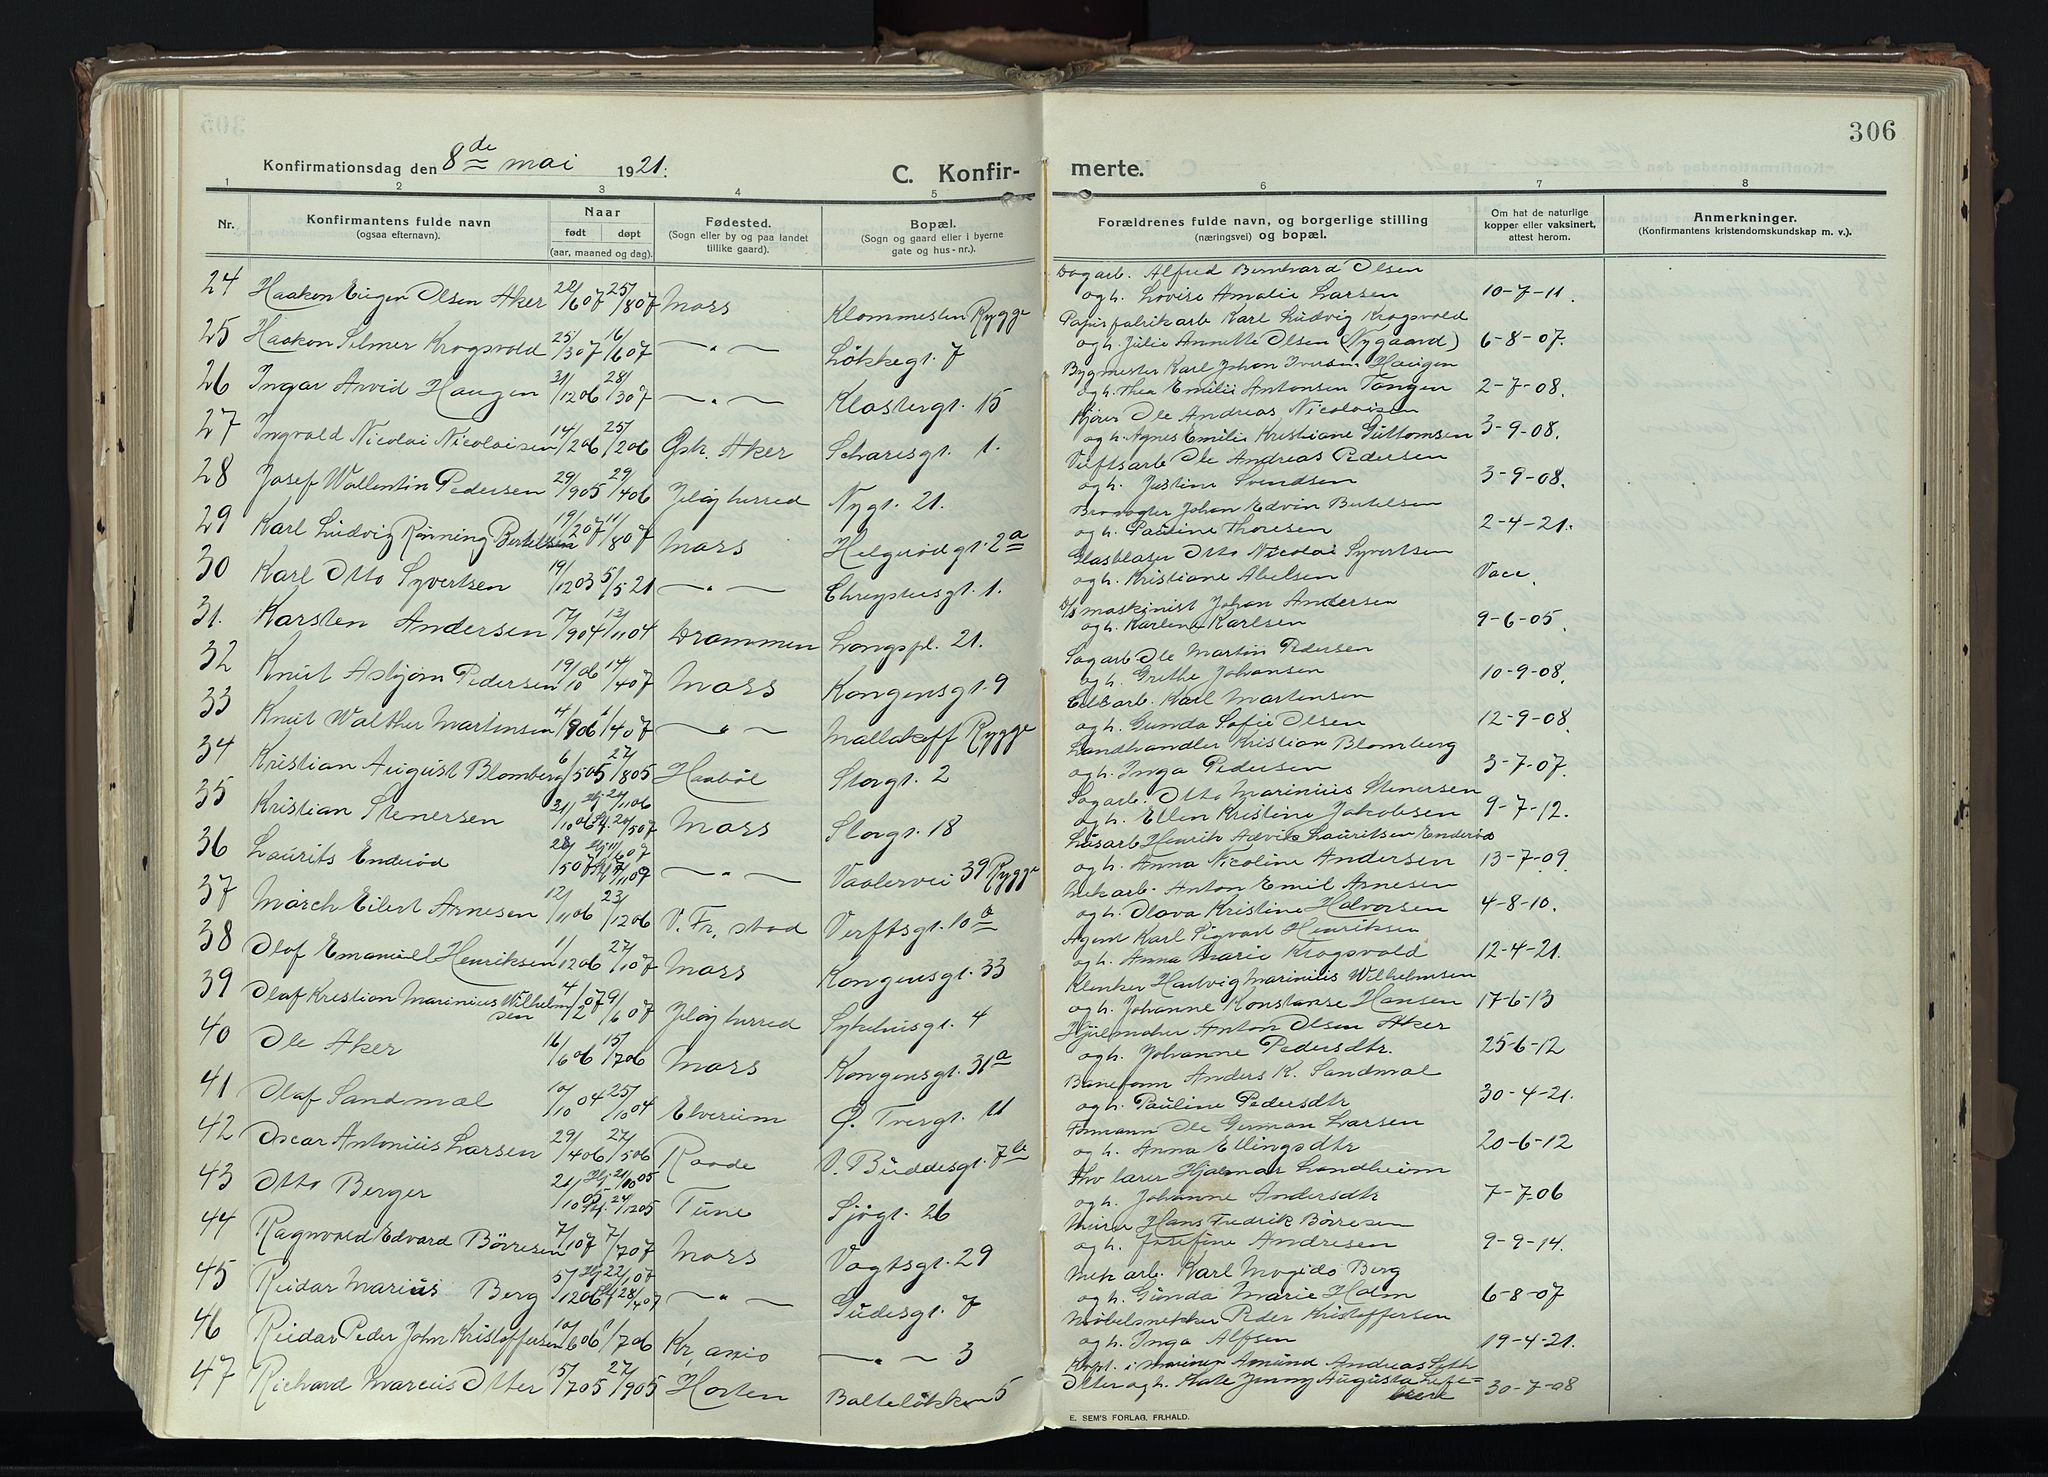 306
Konfirmationsdag den 8de mai 1921.
C. Konfir- merte.
1 2 3 4 5 6 7 8
Nr.
Konfirmantens fulde navn (ogsaa efternavn).
Naar født døpt (aar, maaned og dag).
Fødested. (Sogn eller by og paa landet tillike gaard).
Bopæl. (Sogn og gaard eller i byerne gate og hus-nr.).
Forældrenes fulde navn, og borgerlige stilling (næringsvei) og bopæl.
Om hat de naturlige kopper eller vaksinert, attest herom.
Anmerkninger. (Konfirmantens kristendomskundskap m. v.).
24 Haakon Eugen Olsen Aker 25/8 07 Moss Rygge Alfred Bernhard Olsen
og h. Lovise Amalie Larsen 10-7-11.
25 Haakon Selmer Krogsvold 25/3 07 16/6 07 —„— Løkkegt. 7 Papirfabrikarb Karl Ludvig Krogsvold
og h. Julie Annette Olsen (Nygaard) 6-8-07.
26 Ingar Arvid Haugen 31/12 06 28/3 07 —„— Klostergt. 15 Bygmester Karl Johan Iversen Haugen
og h. Thea Emilie Antonsen Tangen 2-7-08.
27 Ingvald Nicolai Nicolaisen 14/2 06 25/2 06 Aker 1. Kjører Ole Andreas Nicolaisen
og h. Agnes Emilie Kristiane Guttomsen 3-9-08.
28 Josef Wallentin Pedersen 29/9 05 29/4 06 Jeløy herred Nygt. 21. Verftsarb Ole Andreas Pedersen
og h. Justine Svendsen 3-9-08.
29 Karl Ludvig Rønning Bertelsen 19/2 07 11/8 07 Moss Helgerødgt. 2a Brovogter Johan Edvin Bertelsen
og h. Pauline Thoresen 2-4-21.
30 Karl Otto Syvertsen 19/12 03 5/5 21 —„— Chrystiesgt. 1. Glasblaser Otto Nicolai Syvertsen
og h. Kristiane Abelsen Vacc.
31. Karsten Andersen 17/9 04 13/11 04 Drammen Langpl. 21. D/s maskinist Johan Andersen
og h. Karline Karlsen 9-6-05.
32 Knut Asbjørn Pedersen 19/10 06 14/4 07 Moss Kongensgt. 9 Sagarb Ole Martin Pedersen
og h. Grethe Johansen 10-9-08.
33 Knut Walther Martinsen 4/9 06 1/4 07 —„— Mallakoff Rygge Karl Martensen
og h. Gunda Sofie Olsen 12-9-08.
34 Kristian August Blomberg 6/5 05 27/8 05 Haabøl Storgt. 2 Landhandler Kristian Blomberg
og h. Inga Pedersen 3-7-07.
35 Kristian Stenersen 21/10 06 Hj. 24/11 06 20/5 07 Moss Storgt. 18 Sagarb. Otto Marinius Stenersen
og h. Ellen Kristine Jakobsen 9-7-12.
36 Laurits Enderød 28/5 07 —„— Vaalervei 39 Rygge Henrik Lauritsen Enderød
og h. Anna Nicoline Andersen 13-7-09.
37 March Eilert Arnesen 12/11 06 23/12 06 V. Fr. stad Verftsgt. 10b Mek arb. Anton Emil Arnesen
og h. Olava Kristine Halvorsen 4-8-10.
38 Olaf Emanuel Henriksen 1/12 06 27/10 07 Moss Kongensgt. 33 Agent Karl Sigvart Henriksen
og h. Anna Marie Krogsvold 12-4-21.
39 Olaf Kristian Marinius Wilhelmsen 4/2 07 9/6 07 Jeløy herred Sykehusgt. 4 Klinker Hartvig Marinius Wilhelmsen
og h. Johanne Konstanse Hansen 17-6-13
40 Ole Aker 16/6 06 15/7 06 Moss Kongensgt. 31a Hjulmaker Anton Olsen Aker
og h. Johanne Pedersdtr. 25-6-12
41 Olaf Sandmæl 10/10 04 25/10 04 Elverum Ø. Tvergt. 11 Baneform Anders K. Sandmæl
og h. Pauline Pedersdtr 30-4-21.
42 Oscar Antonius Larsen 29/4 06 27/5 06 Raade V. Buddesgt. 7b Formann Ole German Larsen
og h. Anna Ellingsdtr 20-6-12
43 Otto Berger 24/12 05 Tune Sjøgt. 26 lærer Hjalmar Landheim
og h. Johanne Andersdtr 7-7-06
44 Ragnvald Edvard Børresen 7/1 07 7/7 07 Moss Vogtsgt. 29 Murer Hans Fredrik Børresen
og h. Josefine Andresen 9-9-14.
45 Reidar Marius Berg 5/12 06 Hj 22/1 07 28/4 07 —„— Gudesgt. 7 Mek arb. Karl Mogido Berg
og h. Gunda Marie Holm 6-8-07
46 Reidar Peder John Kristoffersen 10/6 06 1/7 06 Kr,ania —„— 3 Møbelsnekker Peder Kristoffersen
og h. Inga Alfsen 19-4-21.
47 Richard Marcus Otter 5/7 05 27/9 05 Horten Balteløkken 5 Kapt. i marinen Amund Andreas Seth
Otter og h. Kate Jenny Augusta Lefe=
bvere 30-7-08
E. SEM'S FORLAG, FR.HALD.